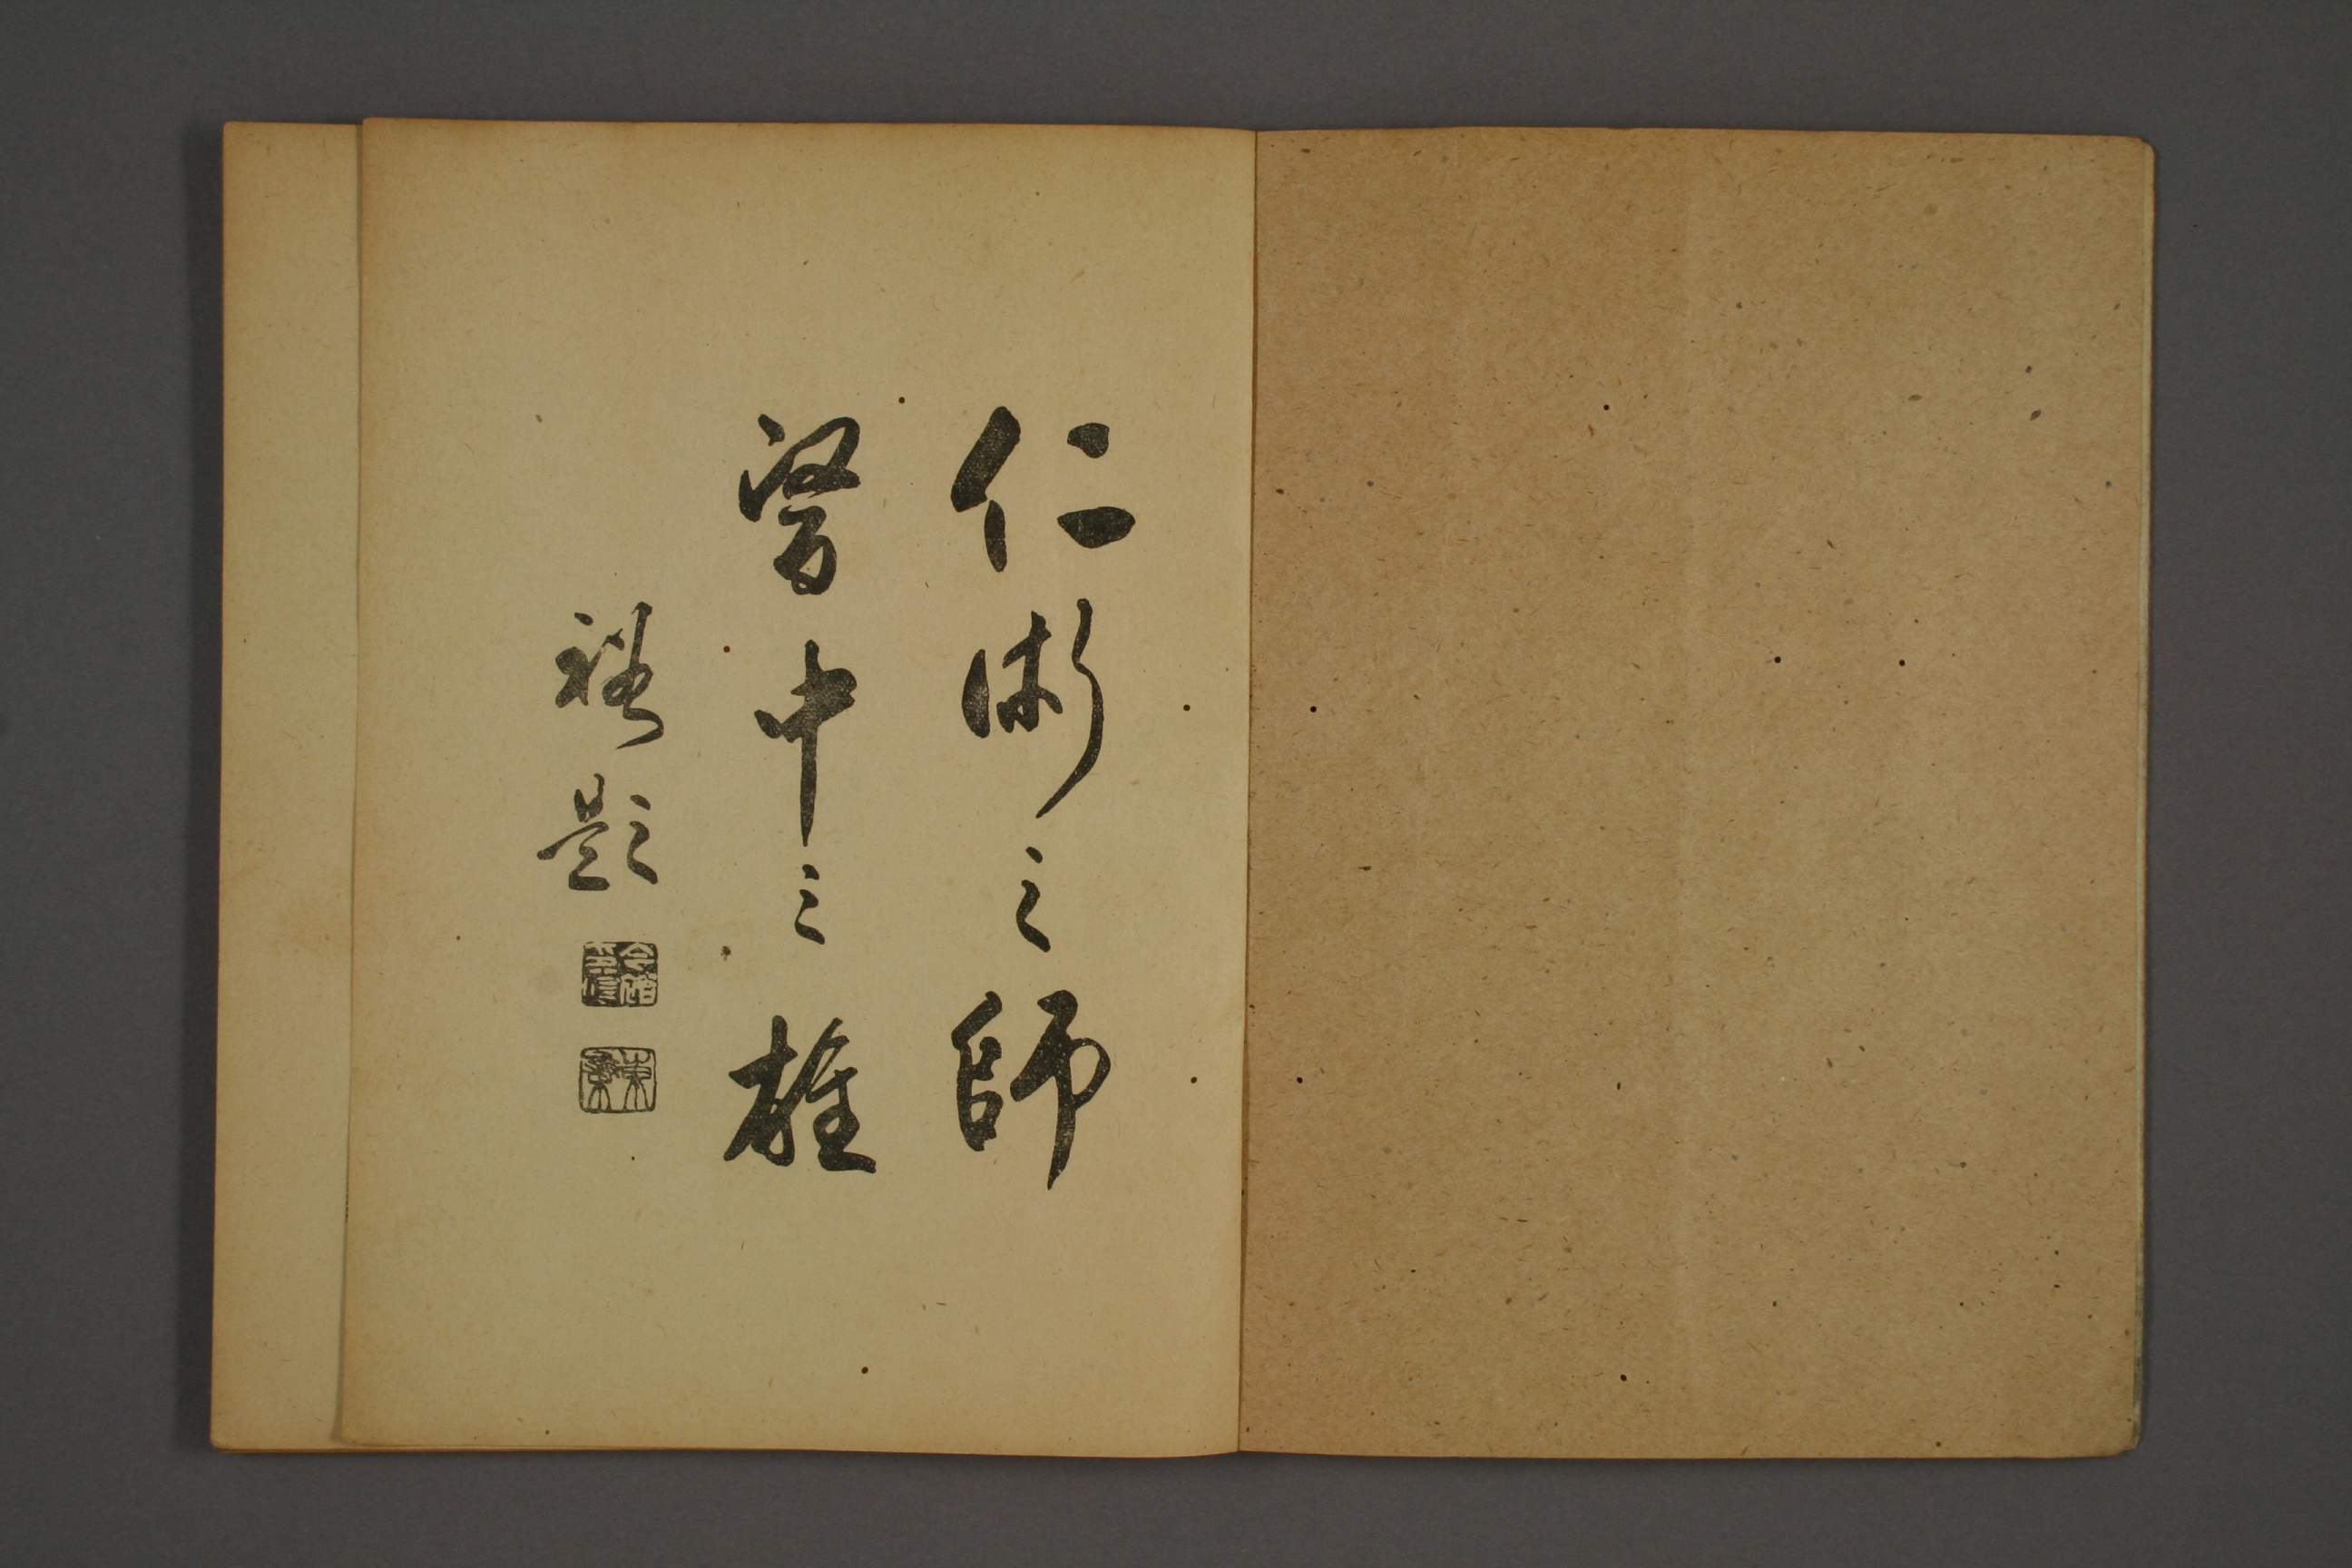 仁術之師
醫中之雄
題